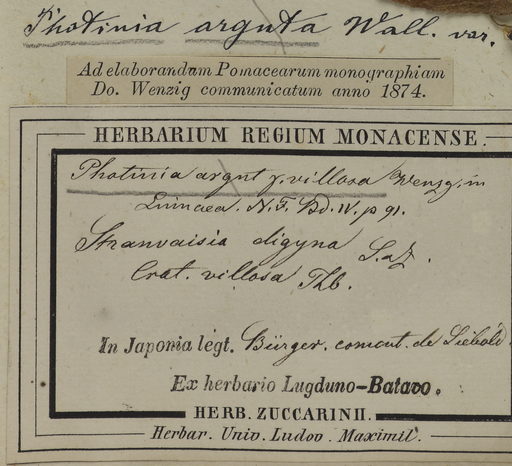 Photinia arguta Wall. var.
Ad elaborandum Pomacearum monographiam
Do. Wenzig communicatum anno 1874.
HERBARIUM REGIUM MONACENSE.
Photinia argut γ. villosa Wenzg. in
Linnaea. N. F. Bd. IV. p 91.
Stranvaisia digyna S. a Z.
Crat. villosa Thb.
In Japonia légt. Bürger. comunt. de Siebold.
Ex herbario Lugduno-Batavo.
HERB. ZUCCARINII.
Herbar. Univ. Ludov. Maximil.